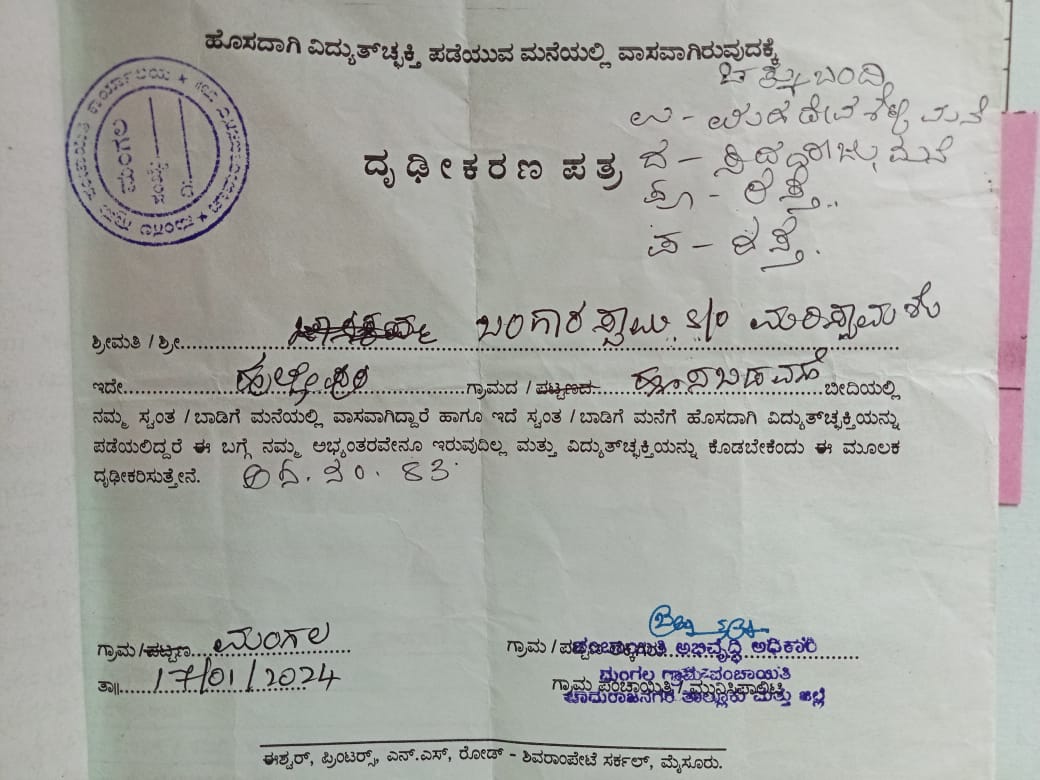 ಹೊಸದಾಗಿ ವಿದ್ಯುತ್‌ಚ್ಛಕ್ತಿ ಪಡೆಯುವ ಮನೆಯಲ್ಲಿ ವಾಸವಾಗಿರುವುದಕ್ಕೆ
ಚಕ್ಕುಬಂದಿ
ಉ - ಮನೆ
ದ - ಸಿದ್ದರಾಜು ಮನೆ
ಪೂ - ರಸ್ತೆ.
ಪ - ರಸ್ತೆ.
ಮಂಗಲ
ದೃಢೀಕರಣ ಪತ್ರ
ಶ್ರೀಮತಿ / ಶ್ರೀ. ಬಂಗಾರಸ್ವಾಮಿ S/O ಮರಿಸ್ವಾಮಿಶೆಟ್ಟಿ
ಇದೇ ಗ್ರಾಮದ / ಪಟ್ಟಣದ ಬೀದಿಯಲ್ಲಿ
ನಮ್ಮ ಸ್ವಂತ / ಬಾಡಿಗೆ ಮನೆಯಲ್ಲಿ ವಾಸವಾಗಿದ್ದಾರೆ ಹಾಗೂ ಇದೆ ಸ್ವಂತ / ಬಾಡಿಗೆ ಮನೆಗೆ ಹೊಸದಾಗಿ ವಿದ್ಯುತ್‌ಚ್ಛಕ್ತಿಯನ್ನು
ಪಡೆಯಲಿದ್ದರೆ ಈ ಬಗ್ಗೆ ನಮ್ಮ ಅಭ್ಯಂತರವೇನೂ ಇರುವುದಿಲ್ಲ ಮತ್ತು ವಿದ್ಯುತ್‌ಚ್ಛಕ್ತಿಯನ್ನು ಕೊಡಬೇಕೆಂದು ಈ ಮೂಲಕ
ದೃಢೀಕರಿಸುತ್ತೇನೆ.
ಗ್ರಾಮ/ಪಟ್ಟಣ ಮಂಗಲ
ತಾ|| 17/01/2024
ಗ್ರಾಮ /
ಪಂಚಾಯಿತಿ ಅಭಿವೃದ್ಧಿ ಅಧಿಕಾರಿ
ಮಂಗಲ ಗ್ರಾಮ ಪಂಚಾಯಿತಿ
ಗ್ರಾಮ ಪಂಚಾಯಿತಿ / ಮುನಿಸಿಪಾಲಿಟಿ
ಚಾಮರಾಜನಗರ ತಾಲ್ಲೂಕು ಮತ್ತು ಜಿಲ್ಲೆ
ಈಶ್ವರ್, ಪ್ರಿಂಟರ್ಸ್, ಎನ್.ಎಸ್, ರೋಡ್ - ಶಿವರಾಂಪೇಟೆ ಸರ್ಕಲ್, ಮೈಸೂರು.